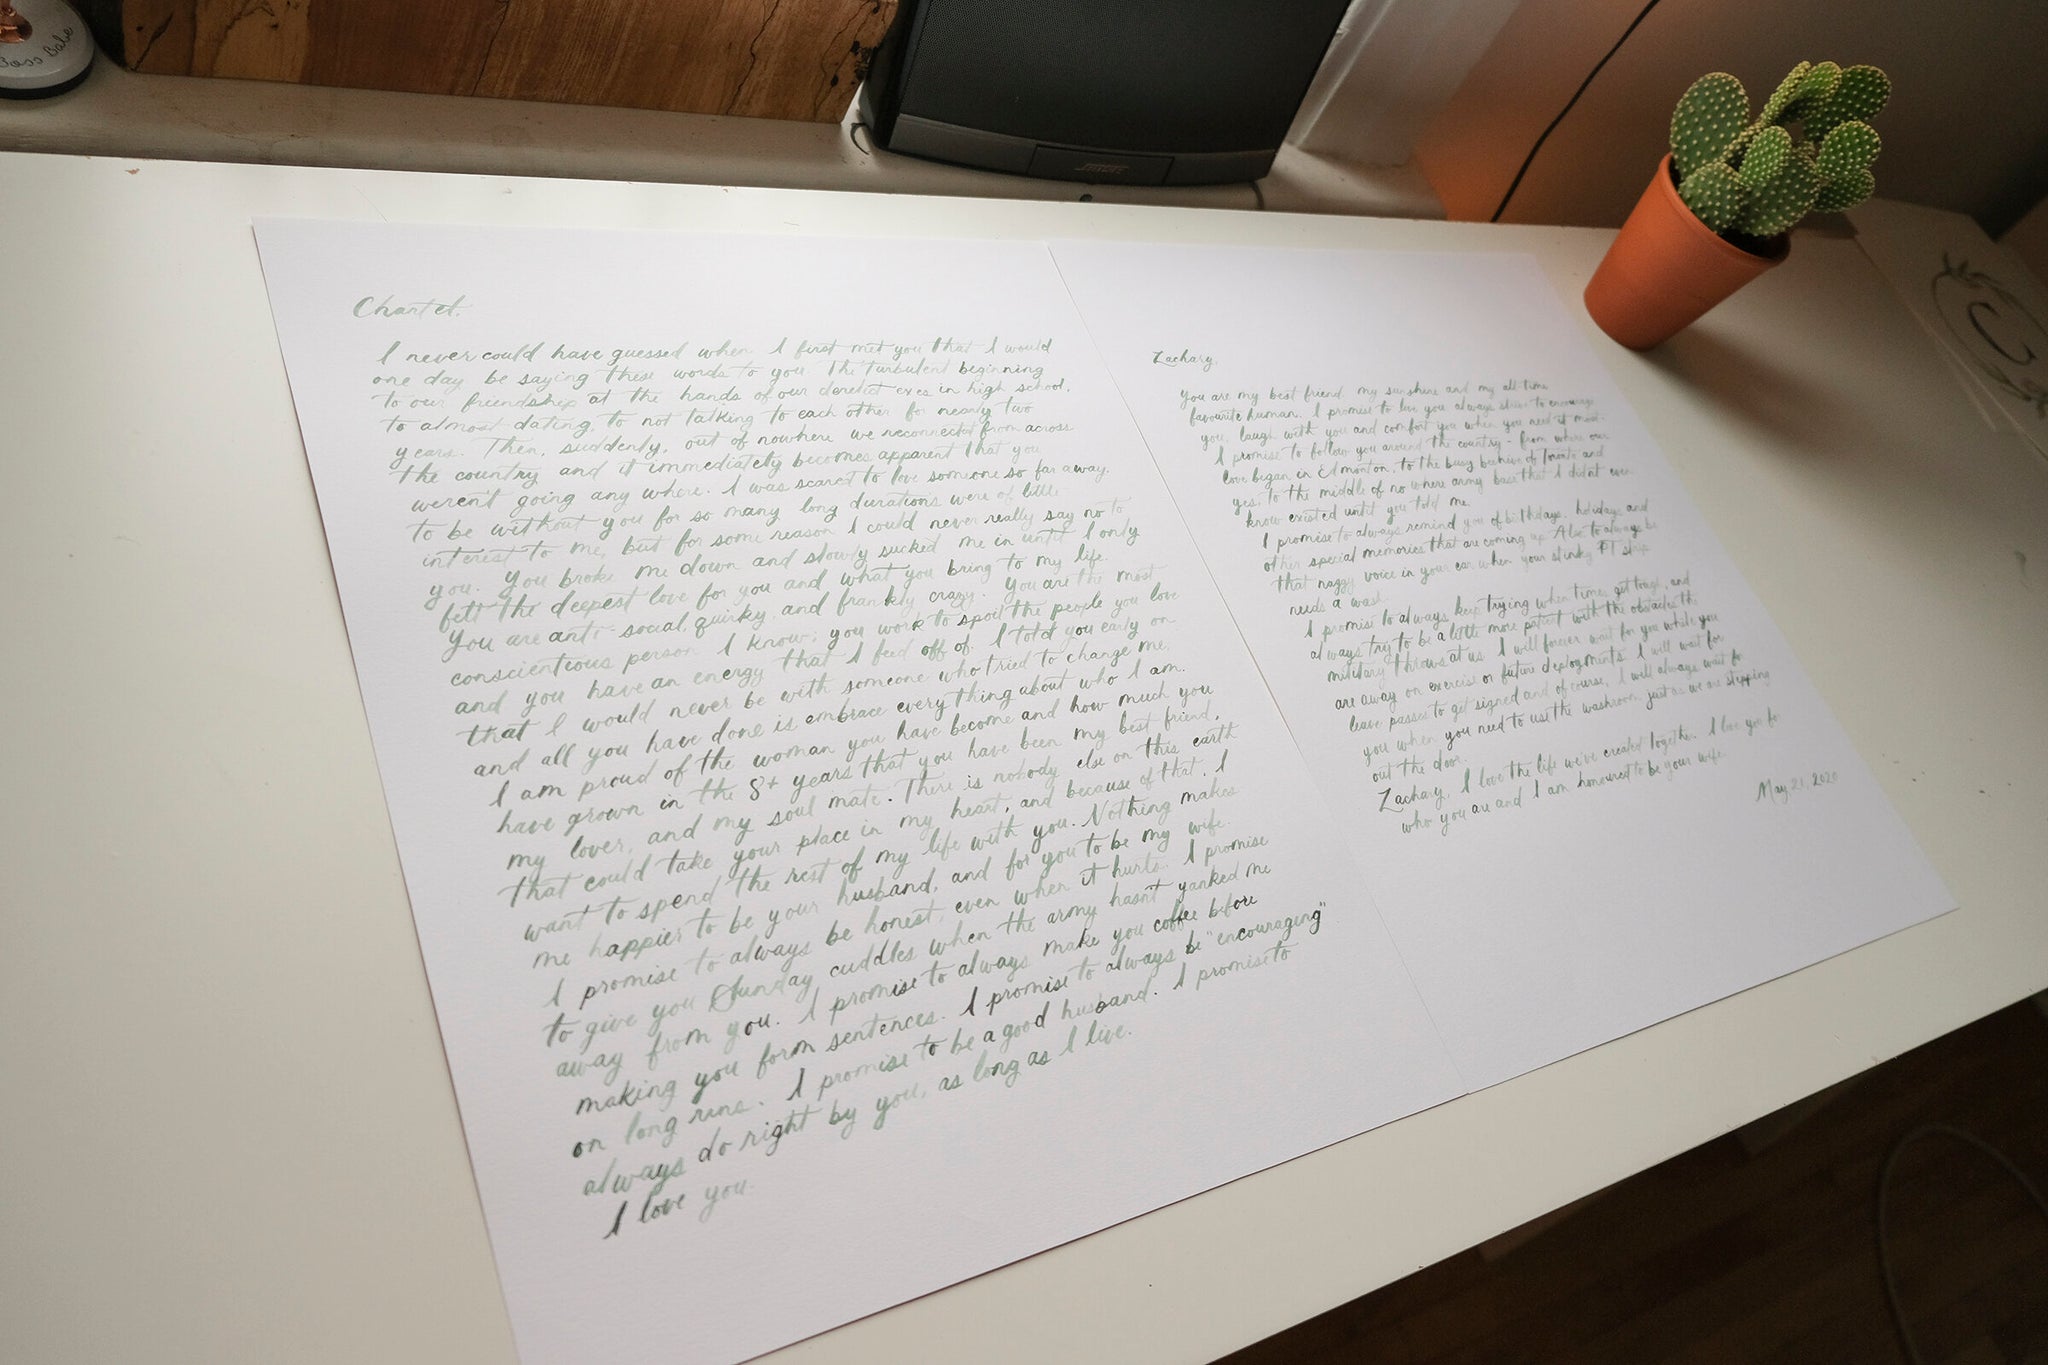 Boss Babe
BOSE
Chartel,
I never could have guessed when I first met you that I would
one day be saying these words to you. The turbulent beginning
to our friendship at the hands of our derelict exes in high school,
to almost dating, to not talking to each other for nearly two
years. Then, suddenly, out of nowhere we reconnected from across
the country and it immediately becomes apparent that you
weren't going any where. I was scared to love someone so far away.
to be without you for so many long durations were of little
interest to me, but for some reason I could never really say no to
you. You broke me down and slowly sucked me in until I only
felt the deepest love for you and what you bring to my life.
You are anti-social, quirky, and frankly crazy. You are the most
conscientious person I know; you work to spoil the people you love
and you have an energy that I feed off of. I told you early on
that I would never be with someone who tried to change me,
and all you have done is embrace everything about who I am.
I am proud of the woman you have become and how much you
have grown in the 8+ years that you have been my best friend,
my lover, and my soul mate. There is nobody else on this earth
that could take your place in my heart, and because of that, I
want to spend the rest of my life with you. Nothing makes
me happier to be your husband, and for you to be my wife.
I promise to always be honest, even when it hurts. I promise
to give you Sunday cuddles when the army hasn't yanked me
away from you. I promise to always make you coffee before
making you form sentences. I promise to always be "encouraging"
on long runs. I promise to be a good husband. I promise to
always do right by you, as long as I live.
I love you.
Zachary,
You are my best friend. my sunshine and my all-time
favourite human. I promise to love you always strive to encourage
you, laugh with you and comfort you when you need it most.
I promise to follow you around the country - from where our
love began in Edmonton, to the busy beehive of Toronto and
yes, to the middle of no where army base that I didnt even
know existed until you told me.
I promise to always remind you of birthdays, holidays and
other special memories that are coming up. Also to always be
that naggy voice in your ear when your stinky PT strip
needs a wash.
I promise to always keep trying when times get tough, and
always try to be a little more patient with the obstacles the
military throws at us. I will forever wait for you while you
are away on exercise or future deployments. I will wait for
leave passes to get signed and of course, I will always wait for
you when you need to use the washroom just as we are stepping
out the door.
Zachary, I love the life we've created together. I love you for
who you are and I am honoured to be your wife.
May 21, 2020
C